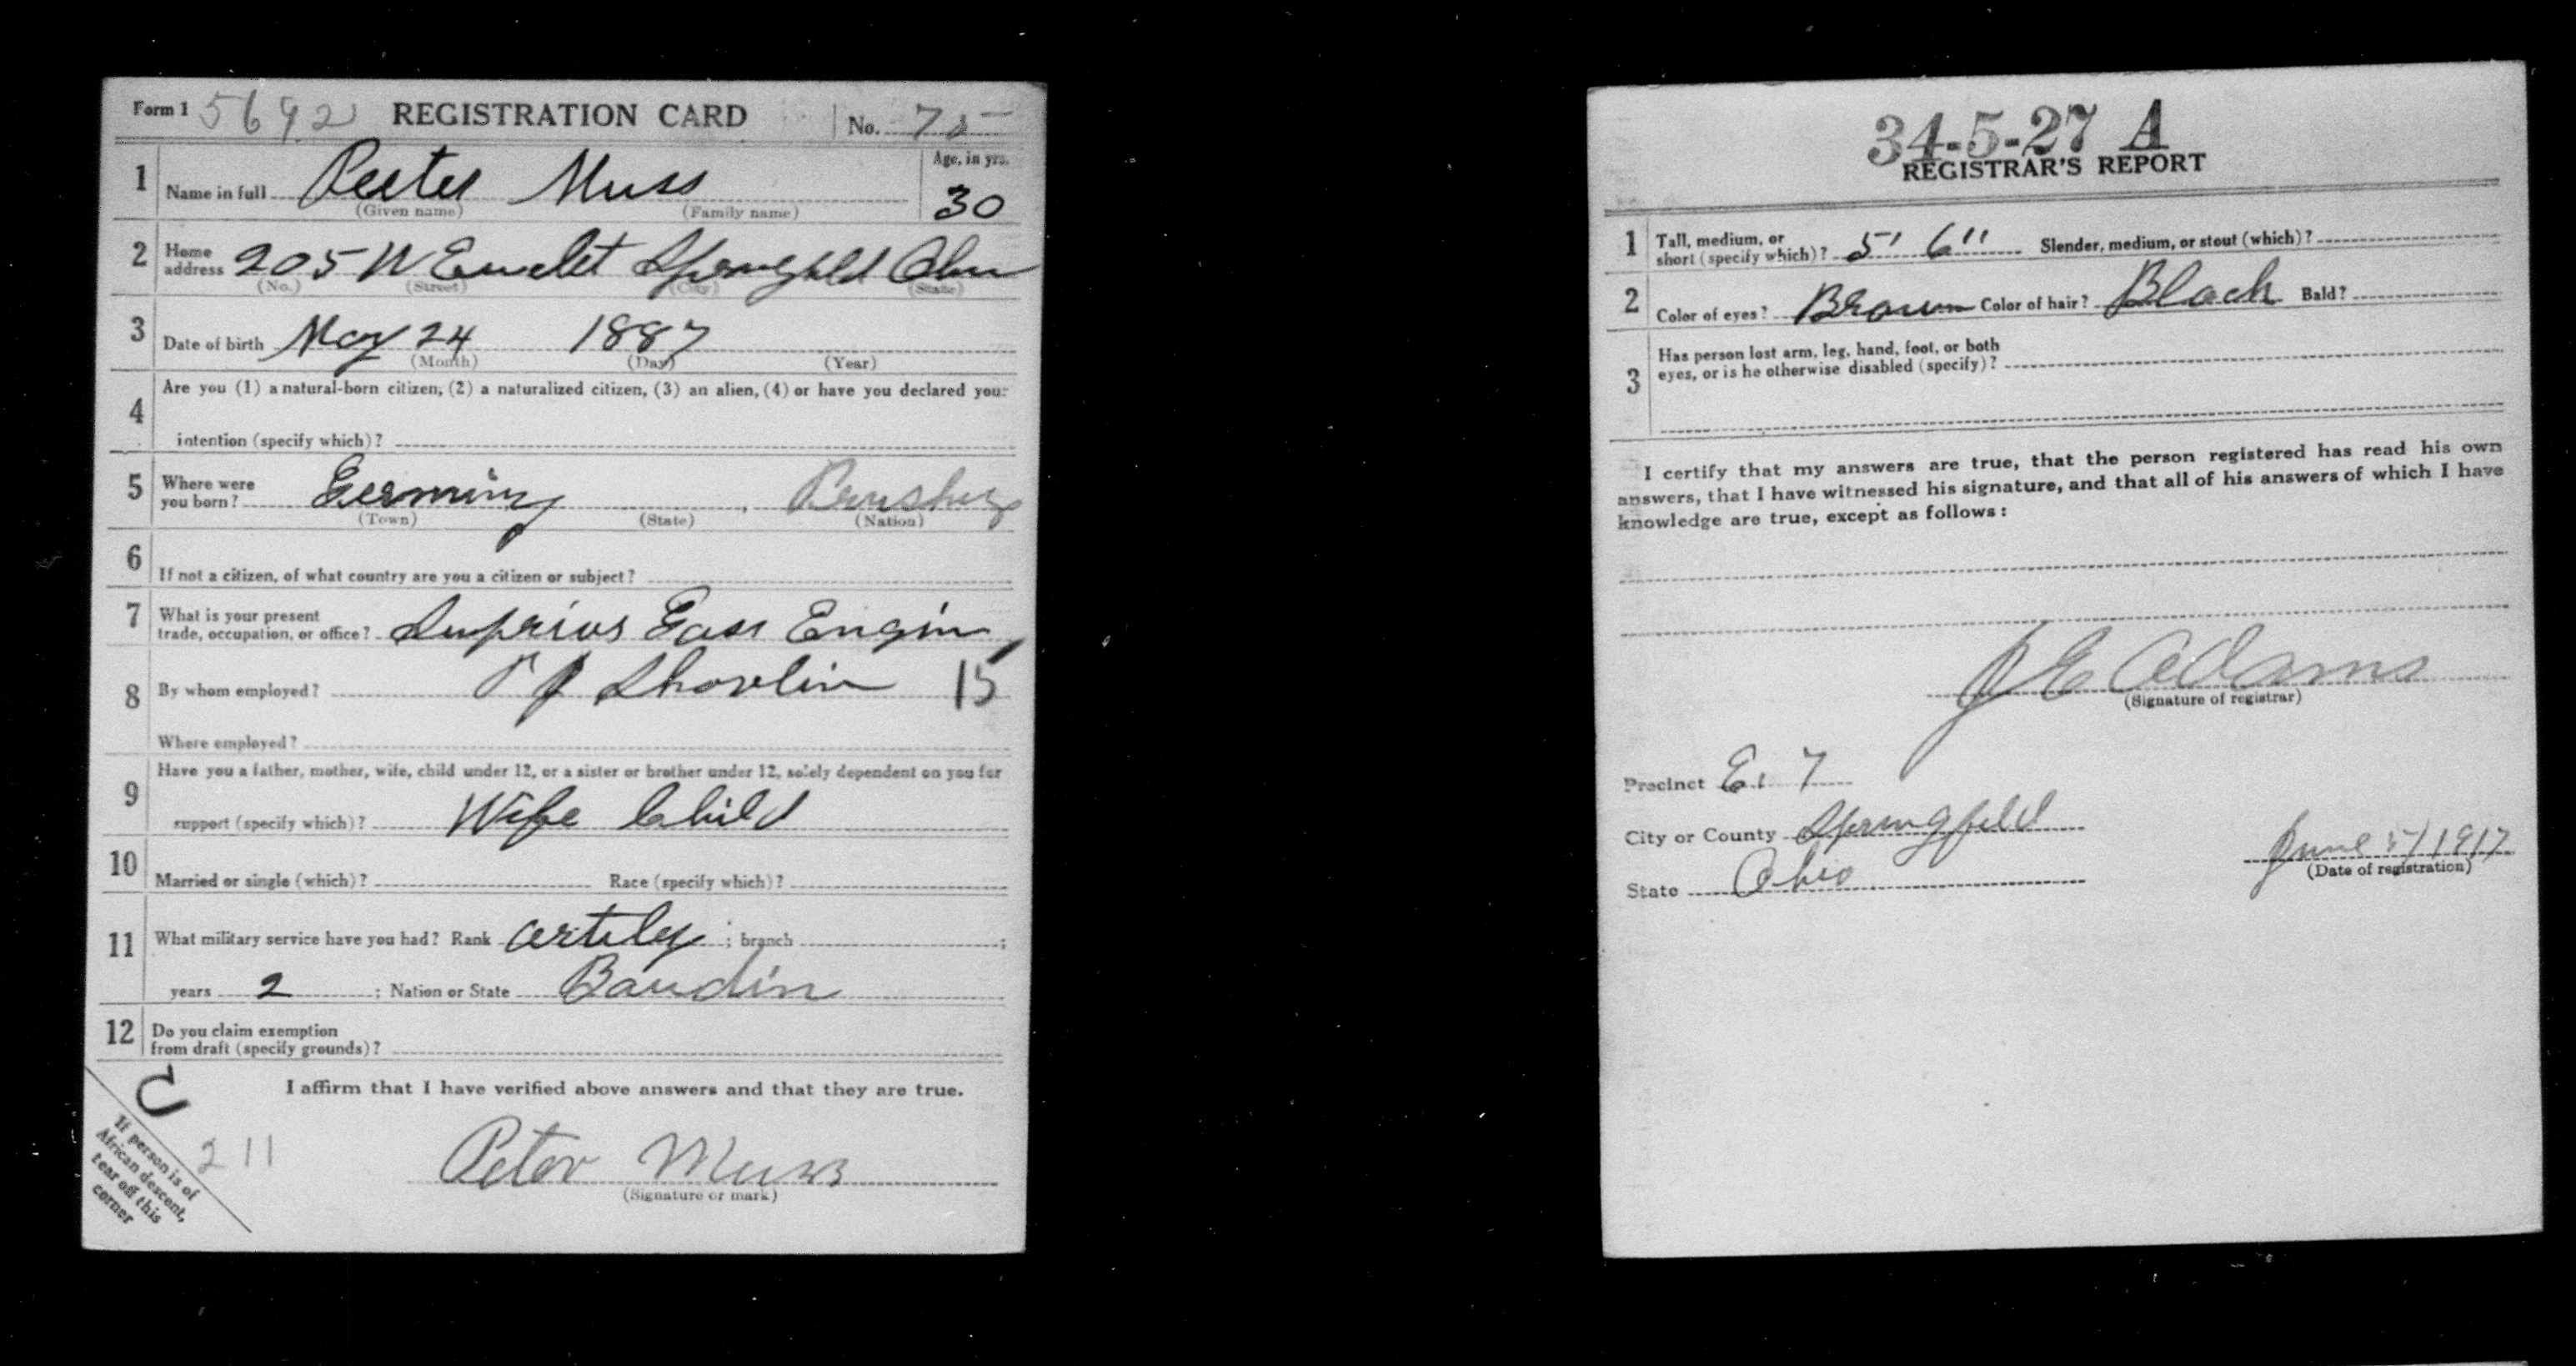 Form 1 5692 REGISTRATION CARD No. 75
1 Name in full Peeter Muss Age, in yrs. 30
(Given name) (Family name)
2 Home address 205 W Euclet Springfield Ohio
(No.) (Street) (City) (State)
3 Date of birth May 24 1887
(Month) (Day) (Year)
4 Are you (1) a natural-born citizen, (2) a naturalized citizen, (3) an alien, (4) or have you declared your
intention (specify which)?
5 Where were you born? Germiny,
(Town) (State) (Nation)
6 If not a citizen, of what country are you a citizen or subject?
7 What is your present trade, occupation, or office? Engin
8 By whom employed? Shovlin 15
Where employed?
9 Have you a father, mother, wife, child under 12, or a sister or brother under 12, solely dependent on you for
support (specify which)? Wife Child
10 Married or single (which)? Race (specify which)?
11 What military service have you had? Rank artiley ; branch ;
years 2 ; Nation or State Baudin
12 Do you claim exemption
from draft (specify grounds)?
I affirm that I have verified above answers and that they are true.
Peter Muss
(Signature or mark)
If person is of
African descent,
tear off this
corner
211
34-5-27 A
REGISTRAR'S REPORT
1 Tall, medium, or
short (specify which)? 5' 6" Slender, medium, or stout (which)?
2 Color of eyes? Brown Color of hair? Black Bald?
3 Has person lost arm, leg, hand, foot, or both
eyes, or is he otherwise disabled (specify)?
I certify that my answers are true, that the person registered has read his own
answers, that I have witnessed his signature, and that all of his answers of which I have
knowledge are true, except as follows:
J E Adams
(Signature of registrar)
Precinct E. 7
City or County Springfield
State Ohio
June 5/1917
(Date of registration)